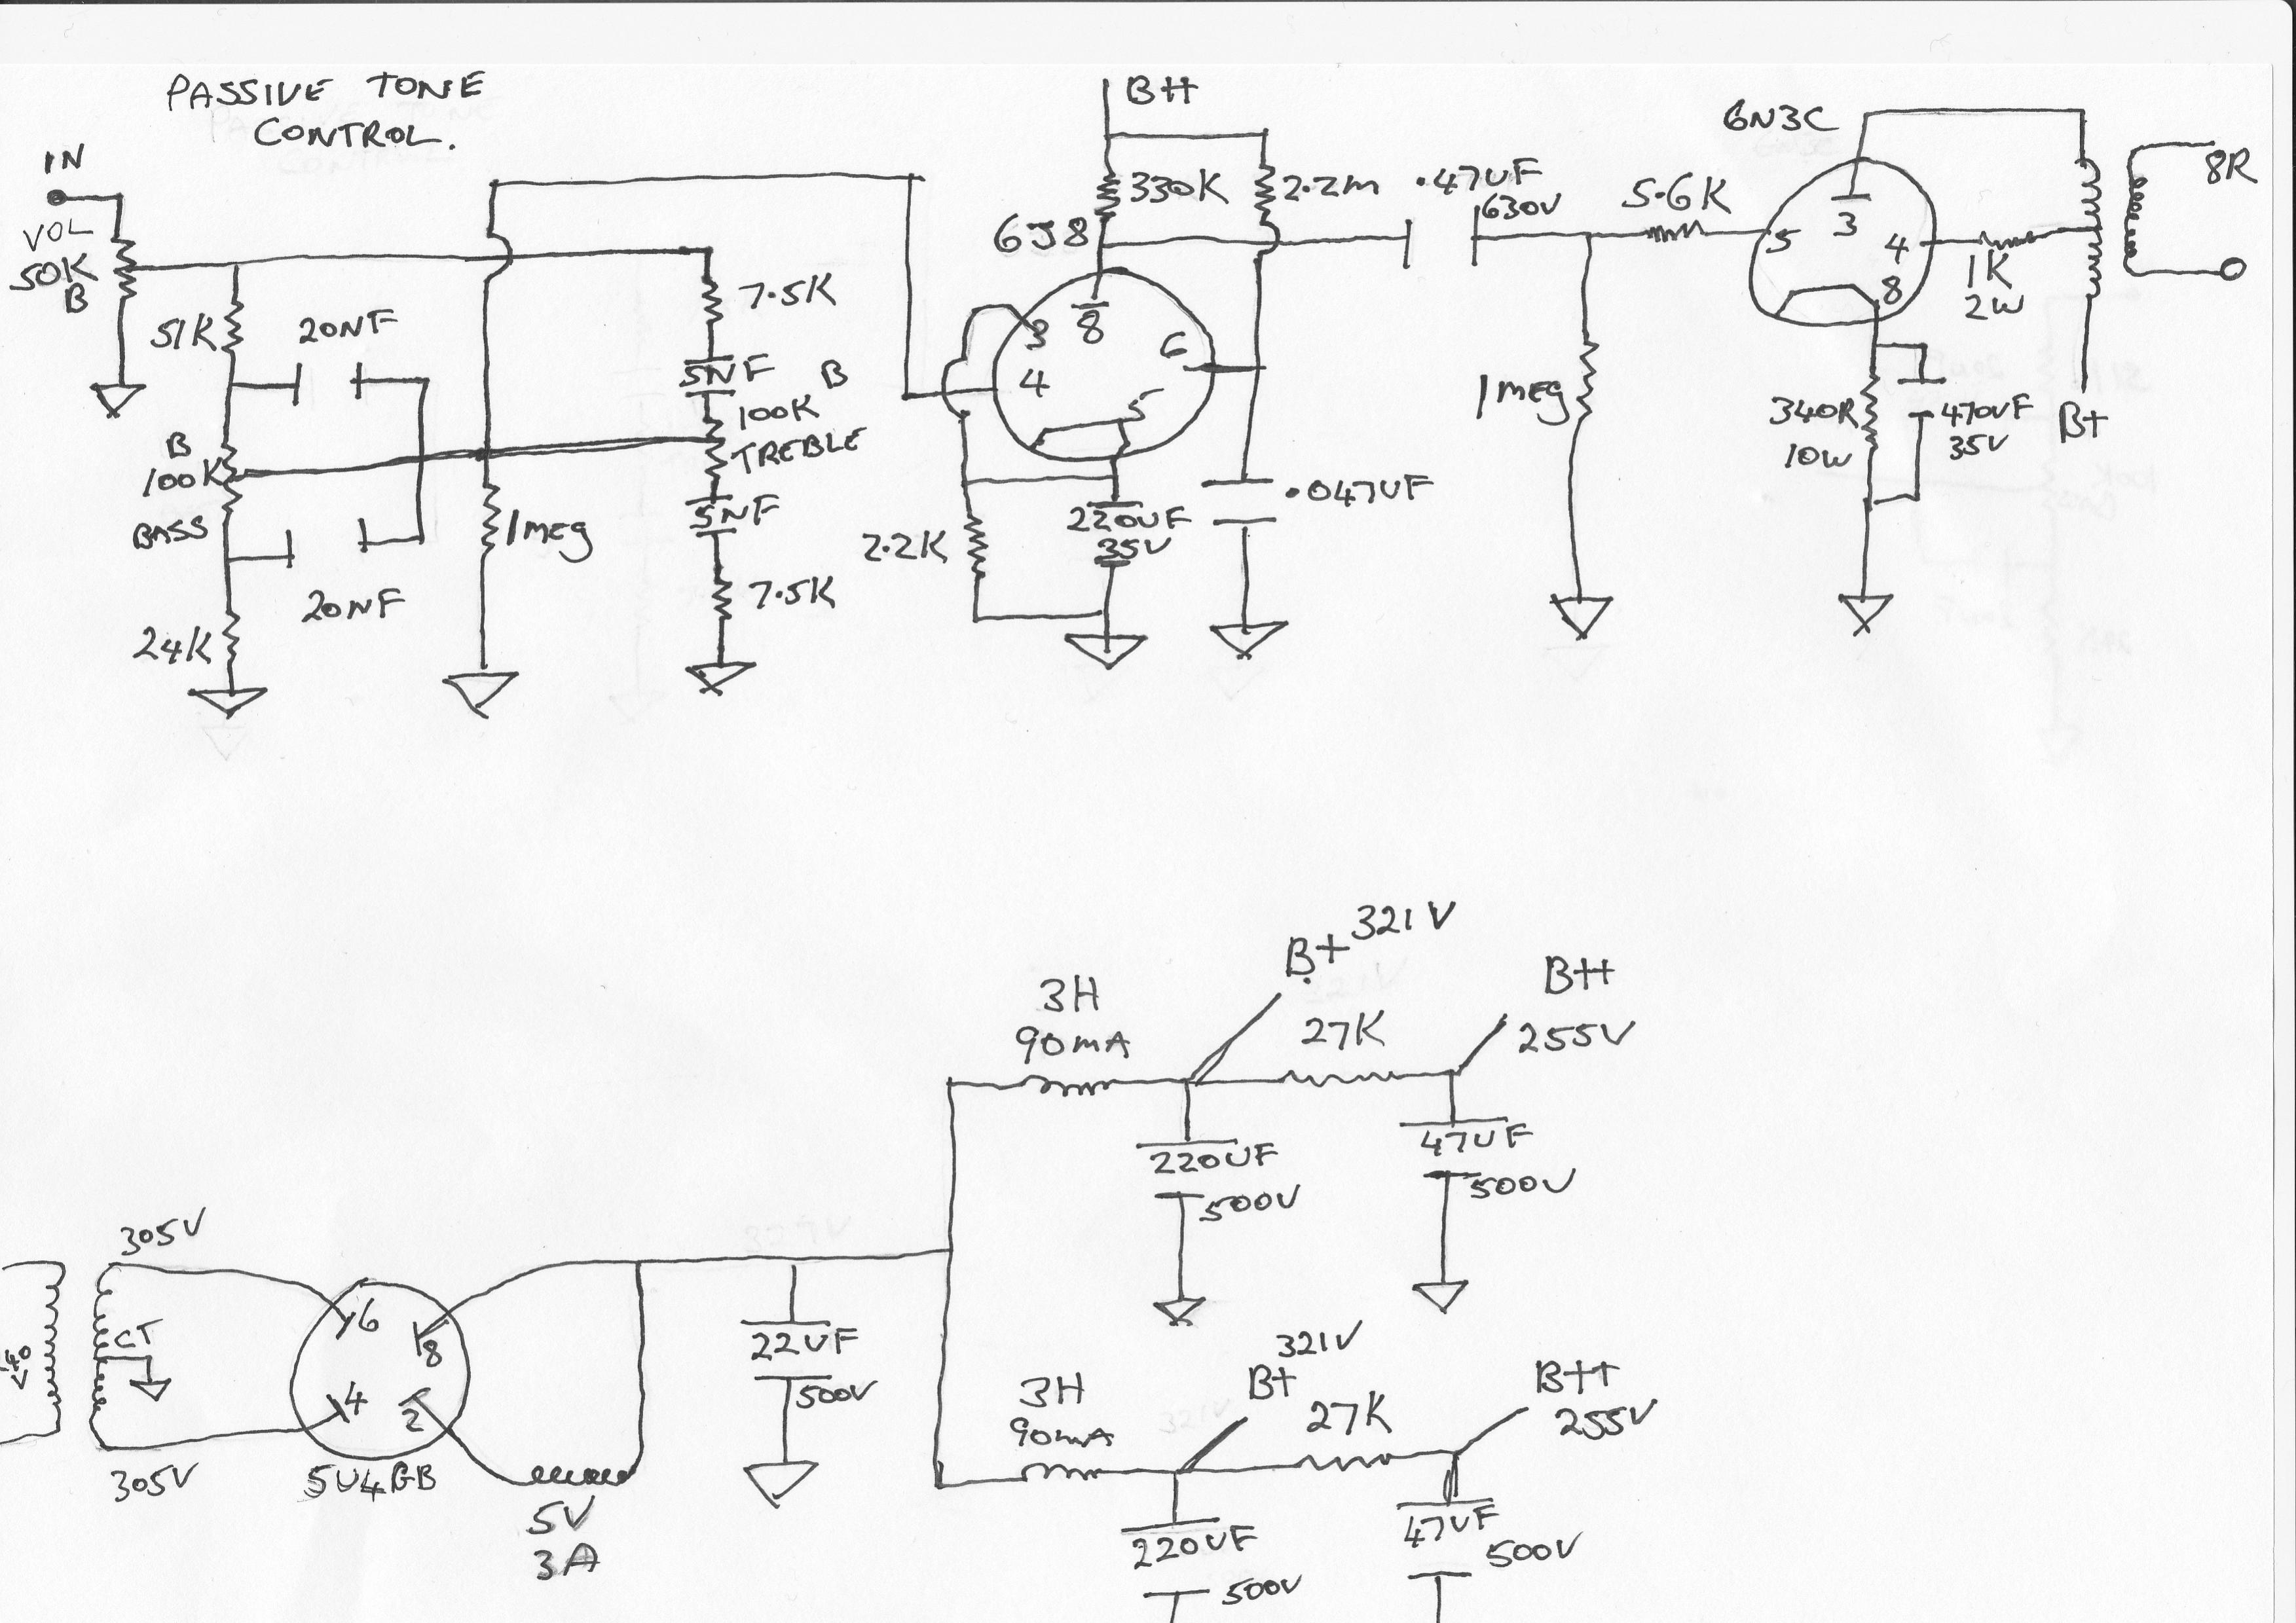 PASSIVE TONE
CONTROL.
IN
VOL
50K
B
51K
20NF
B
100K
BASS
20NF
24K
1MEG
7.5K
5NF
B
100K
TREBLE
5NF
7.5K
B++
330K
2.2M
6J8
3
8
6
4
5
2.2K
220UF
35V
.047UF
.47UF
630V
5.6K
1MEG
6N3C
5
3
4
8
1K
2W
340R
10W
470UF
35V
B+
8R
305V
CT
6
8
4
2
305V
5U4GB
5V
3A
22UF
500V
3H
90mA
B+ 321V
27K
B++
255V
220UF
500V
47UF
500V
3H
90mA
321V
B+
27K
B++
255V
220UF
500V
47UF
500V